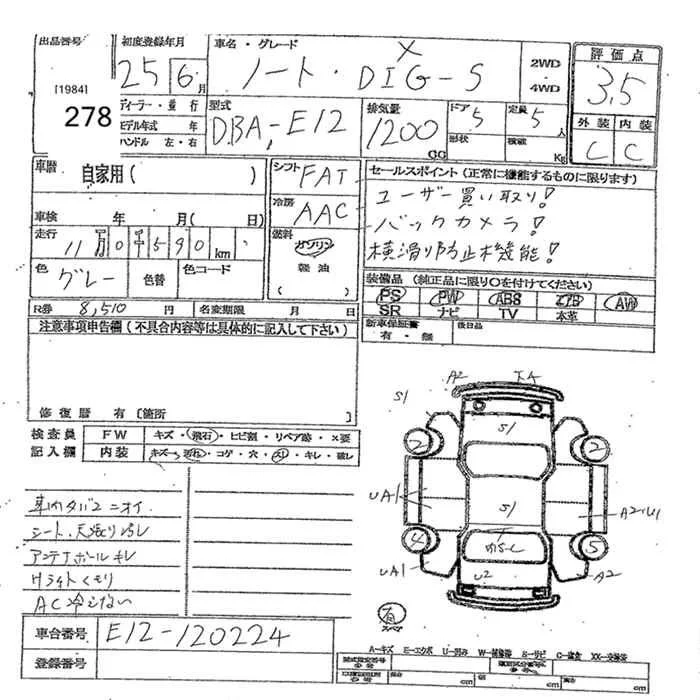 出品番号
[1984]
278
初度登録年月
25 6 月
ディーラー・並行
モデル年式 年
ハンドル 左・右
車名・グレード
ノート・DIG-S X
2WD
4WD
型式
DBA-E12
排気量
1200 cc
ドア 5
形状
定員 5 人
積載 Kg
評価点
3.5
外装 内装
C C
車歴
自家用( )
車検 年 月( 日)
走行
11万0千590km
色 グレー 色替 色コード
シフト FAT
冷房 AAC
燃料 ガソリン
軽油
( )
セールスポイント(正常に機能するものに限ります)
ユーザー買い取り!
バックカメラ!
横滑り防止機能!
装備品(純正品に限り○を付けてください)
PS PW ABS エアB AW
SR ナビ TV 本革
新車保証書 後日品
有・無
R券 8,510 円 名変期限 月 日
注意事項申告欄(不具合内容等は具体的に記入して下さい)
修復歴 有〔箇所 〕
検査員 FW キズ・飛石・ヒビ割・リペア跡・×要
記入欄 内装 キズ・汚れ・コゲ・穴・スリ・キレ・破レ
車内タバコニオイ
シート、天張り汚レ
アンテナポールキレ
Hライトくもり
AC冷えない
車台番号 E12-120224
登録番号
A2
S1
S1
2
2
UA1
S1
4
5
UA1
U2
A2
有
スペア
A-キズ E-エクボ U-凹み W-補修跡 S-サビ C-腐食 XX-交換済
cm cm cm